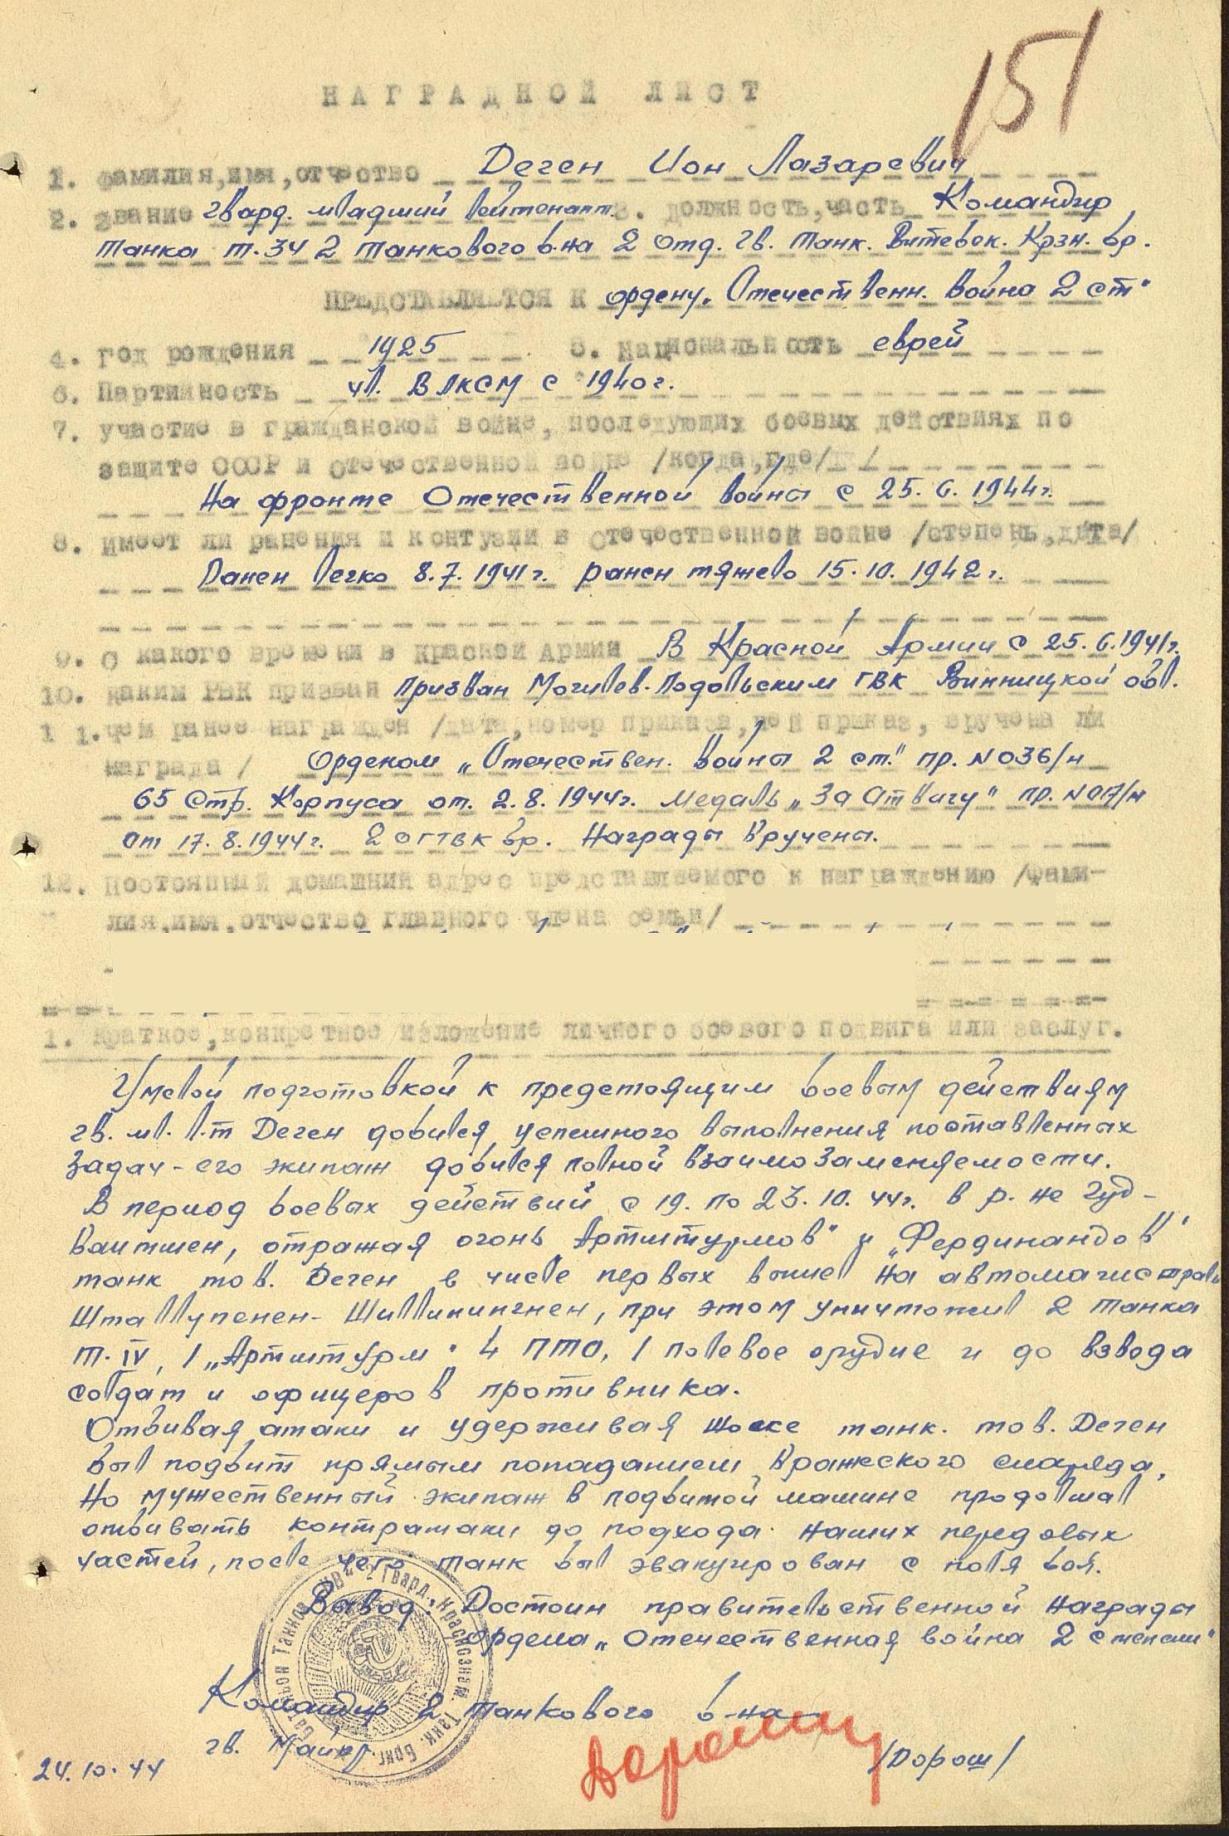 151
НАГРАДНОЙ ЛИСТ
1. фамилия, имя, отчество Деген Ион Лазаревич
2. звание гвард. младший лейтенант. 3. должность, часть Командир
танка т.34 2 танкового б-на 2 отд. гв. танк. Витебск. Крзн. бр.
ПРЕДСТАВЛЯЕТСЯ К ордену „Отечественн. война 2 ст"
4. год рождения 1925 5. национальность еврей
6. Партийность чл. ВЛКСМ с 1940 г.
7. участие в гражданской войне, последующих боевых действиях по
защите СССР и отечественной войне /когда, где/
На фронте Отечественной войны с 25.6.1944г.
8. имеет ли ранения и контузии в отечественной войне /степень, дата/
Ранен легко 8.7.1941г. ранен тяжело 15.10.1942г.
9. С какого времени в Красной Армии В Красной Армии с 25.6.1941г.
10. каким РВК призван Призван Могилев-Подольским ГВК Винницкой обл.
11. чем ранее награжден /дата, номер приказа, чей приказ, вручена ли
награда/ Орденом „Отечествен. войны 2 ст." пр. N 036/н
65 Стр. Корпуса от. 2.8.1944г. медаль „За Отвагу" пр. N 017/н
от 17.8.1944г. 2 ОГТВК бр. Награды вручены.
12. Постоянный домашний адрес представляемого к награждению /фами-
лия, имя, отчество главного члена семьи/
1. краткое, конкретное изложение личного боевого подвига или заслуг.
Умелой подготовкой к предстоящим боевым действиям
гв. мл. л-т Деген добился успешного выполнения поставленных
задач - его экипаж добился полной взаимозаменяемости.
В период боевых действий с 19. по 23.10.44г. в р-не Гуд-
ваитшен, отражая огонь „Артштурмов" и „Фердинандов"
танк тов. Деген в числе первых вышел на автомагистраль
Шталлупенен - Шиллинингнен, при этом уничтожил 2 танка
т. IV, 1 „Артштурм" 4 ПТО, 1 полевое орудие и до взвода
солдат и офицеров противника.
Отбивая атаки и удерживая шоссе танк. тов. Деген
был подбит прямым попаданием вражеского снаряда,
Но мужественный экипаж в подбитой машине продолжал
отбивать контратаки до подхода наших передовых
частей, после чего танк был эвакуирован с поля боя.
Вывод: Достоин правительственной награды
ордена „Отечественная война 2 степени"
Командир 2 танкового б-на
гв. Майор /Дорош/
24.10.44